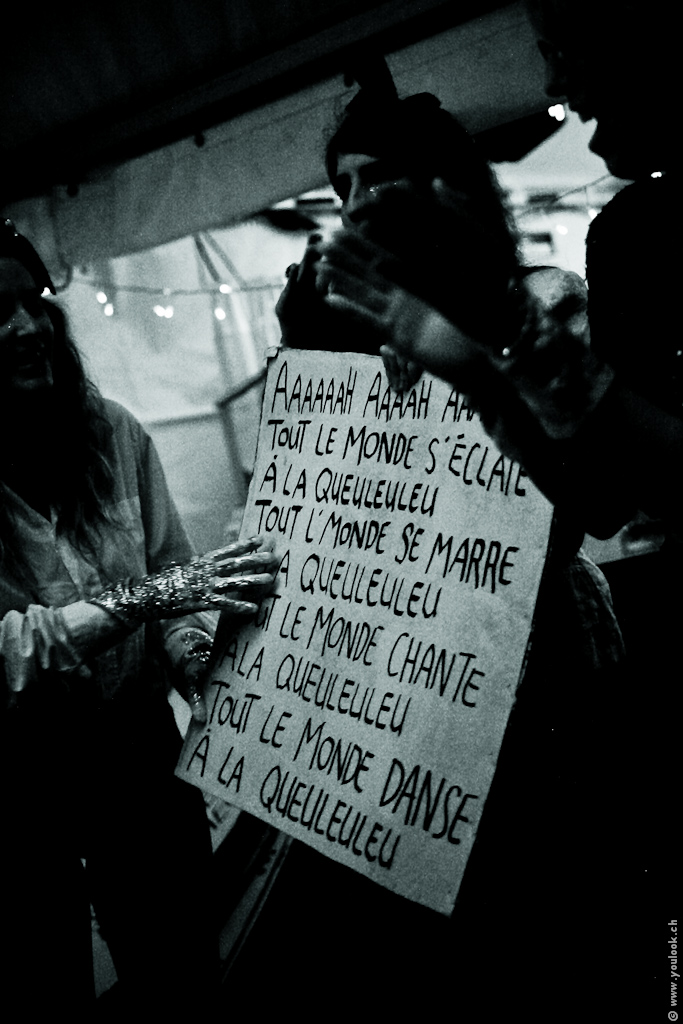 AAAAAAH AAAAH AAA
TOUT LE MONDE S'ÉCLATE
À LA QUEULEULEU
TOUT L'MONDE SE MARRE
A QUEULEULEU
UT LE MONDE CHANTE
ALA QUEULEULEU
TOUT LE MONDE DANSE
À LA QUEULEULEU
© www.youlook.ch